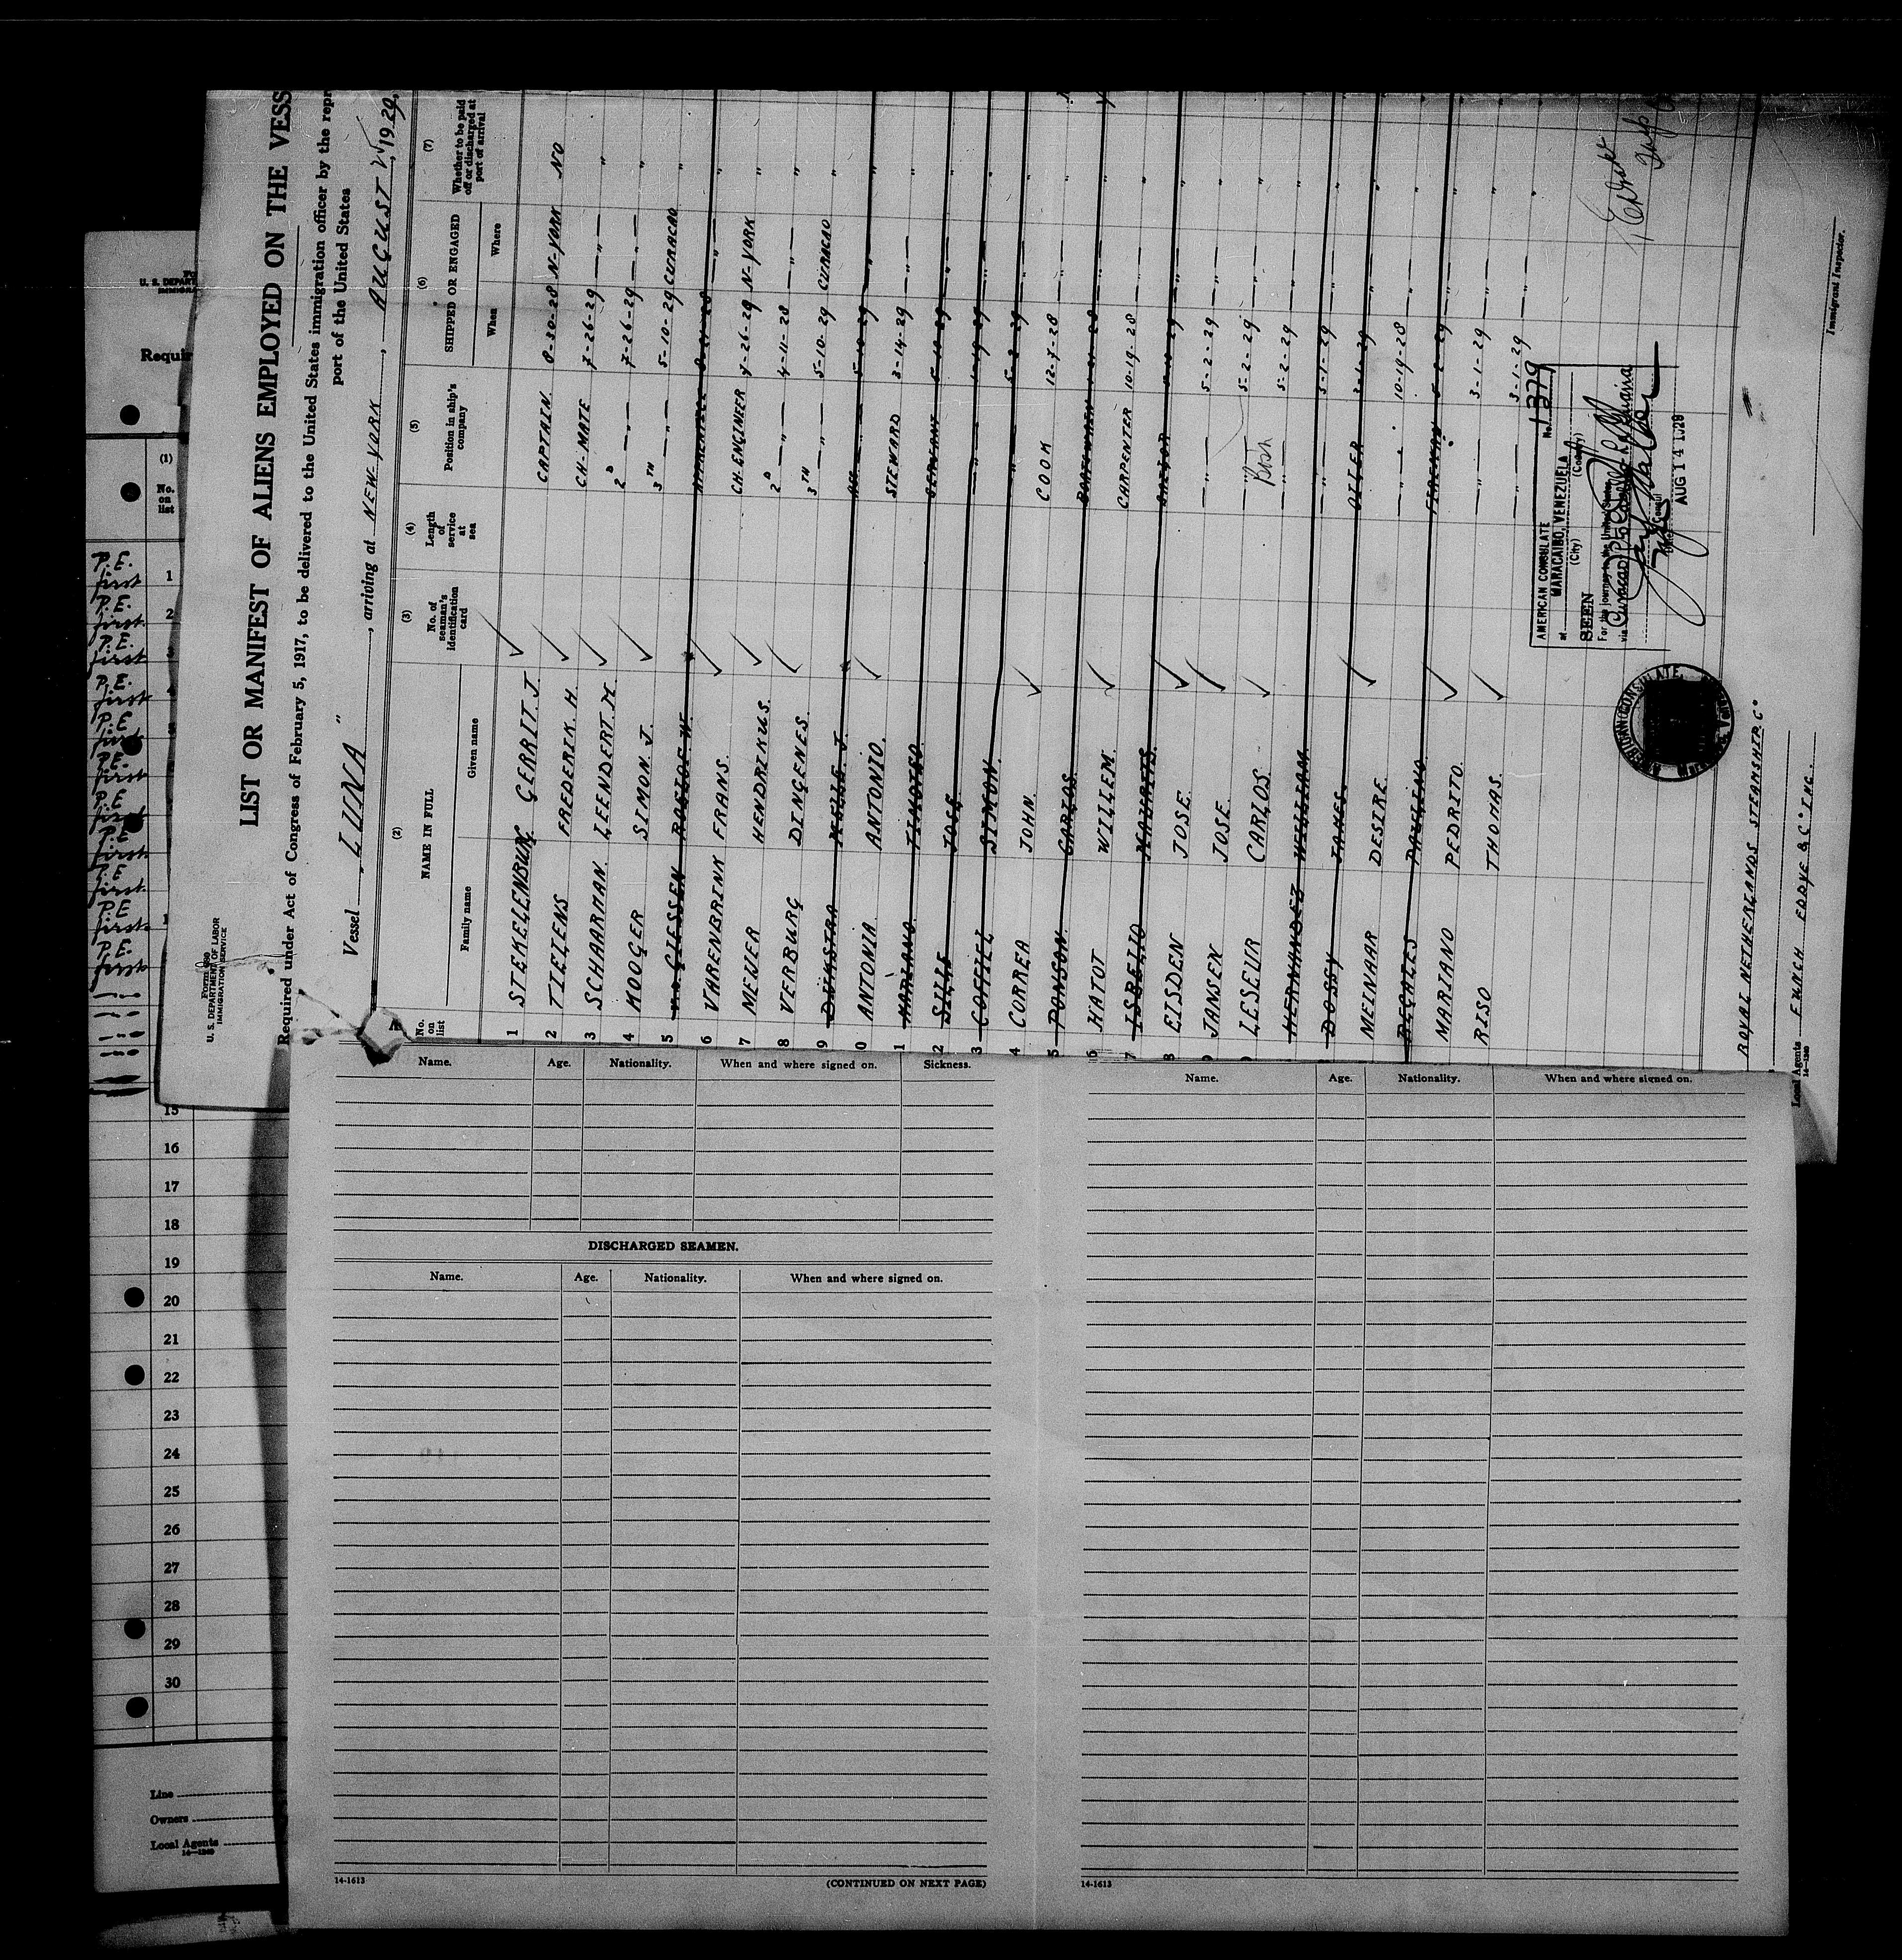 Form 680
U. S. DEPARTMENT OF LABOR
IMMIGRATION SERVICE
LIST OR MANIFEST OF ALIENS EMPLOYED ON THE VESS
Required under Act of Congress of February 5, 1917, to be delivered to the United States immigration officer by the repr
port of the United States
Vessel "LUNA", arriving at NEW-YORK, AUGUST, 1929,
(1) No. on list
(2) NAME IN FULL
Family name Given name
(3) No. of seaman's identification card
(4) Length of service at sea
(5) Position in ship's company
(6) SHIPPED OR ENGAGED
When Where
(7) Whether to be paid off or discharged at port of arrival
1 STEKELENBURG GERRIT J. CAPTAIN 8-30-28 N-YORK NO
2 TIELENS FREDERIK H. CH-MATE 7-26-29 — " — "
3 SCHAARMAN LEENDERT M. 2D — " — 7-26-29 — " — "
4 KOOGER SIMON J. 3TH — " — 5-10-29 CURACAO "
5 GIESSEN W. APPRENTICE — " — "
6 VARENBRINK FRANS. CH. ENGINEER 7-26-29 N-YORK "
7 MEIJER HENDRIKUS. 2D — " — 4-11-28 — " — "
8 VERBURG DINGENES. 3TH — " — 5-10-29 CURACAO "
9 DIJKSTRA J. 5-10-29 — " — "
0 ANTONIA ANTONIO. STEWARD 3-14-29 — " — "
1 MARIANO TIMOTEO. SERVANT 5-10-29 — " — "
2 SILLE JOSE — " — — " — "
3 COFFIEL SIMON. — " — — " — "
4 CORREA JOHN. COOK 12-7-28 — " — "
5 PONSON CARLOS — " — "
6 HATOT WILLEM. CARPENTER 10-19-28 — " — "
7 ISBELIO MAURITS. SAILOR — " — "
8 EISDEN JOSE. — " — 5-2-29 — " — "
9 JANSEN JOSE. — " — 5-2-29 — " — "
LESEUR CARLOS. — " — 5-2-29 — " — "
HERNANDEZ WILLIAM — " — 3-1-29 — " — "
DOSSY JAMES OILER — " — "
MEINAAR DESIRE. — " — 10-19-28 — " — "
REGALES PAULINO FIREMAN 5-2-29 — " — "
MARIANO PEDRITO. — " — 3-1-29 — " — "
RISO THOMAS. — " — 3-1-29 — " — "
No. 1379
AMERICAN CONSULATE
at MARACAIBO, VENEZUELA
(City) (Country)
SEEN
For the journey to the United States
via Curacao
Consul
AUG 14 1929
AMERICAN CONSULATE
ROYAL NETHERLANDS STEAMSHIP Co
Local Agents FUNCH EDDYE & Co INC.
14—1240
Immigrant Inspector.
U. S. DEPART
IMMIGRA
Requir
(1)
No. on list
P.E. first 1
P.E. first 2
P.E. first
P.E. first
P.E. first
P.E. first
P.E. first
P.E. first
P.E. first
P.E. first
P.E. first
15
16
17
18
19
20
21
22
23
24
25
26
27
28
29
30
Line
Owners
Local Agents
14—1240
Name. Age. Nationality. When and where signed on. Sickness.
DISCHARGED SEAMEN.
Name. Age. Nationality. When and where signed on.
14-1613 (CONTINUED ON NEXT PAGE)
Name. Age. Nationality. When and where signed on.
14-1613